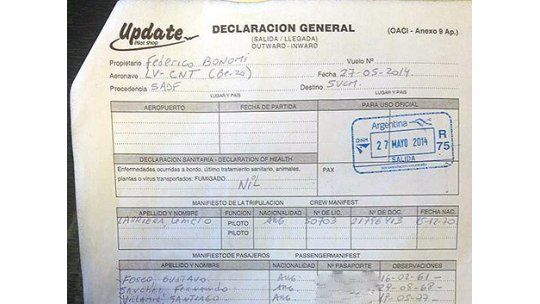 Update
pilot shop
DECLARACION GENERAL
(SALIDA / LLEGADA)
OUTWARD - INWARD
(OACI - Anexo 9 Ap.)
Propietario Federico BONOMI Vuelo Nº
Aeronave LV-CNT (Be-20) Fecha 27-05-2014
Procedencia SADF Destino SUCM.
LUGAR Y PAIS LUGAR Y PAIS
AEROPUERTO FECHA DE PARTIDA PARA USO OFICIAL
Argentina
DNM 27 MAYO 2014 R 75
SALIDA
DECLARACION SANITARIA - DECLARATION OF HEALTH
Enfermedades ocurridas a bordo, último tratamiento sanitario, animales,
plantas o virus transportados: FUMIGADO NIL
PAX
MANIFIESTO DE LA TRIPULACION CREW MANIFEST
APELLIDO Y NOMBRE FUNCION NACIONALIDAD Nº DE LIC. Nº DE DOC. FECHA NAC.
PILOTO ARG 50703
PILOTO
MANIFIESTO DE PASAJEROS PASSENGERMANIFEST
APELLIDO Y NOMBRE NACIONALIDAD Nº PASAPORTE
FOSCO GUSTAVO ARG. 16-02-61-
SANCHEZ FERNANDO ARG. 29-08-68-
SANTIAGO ARG.